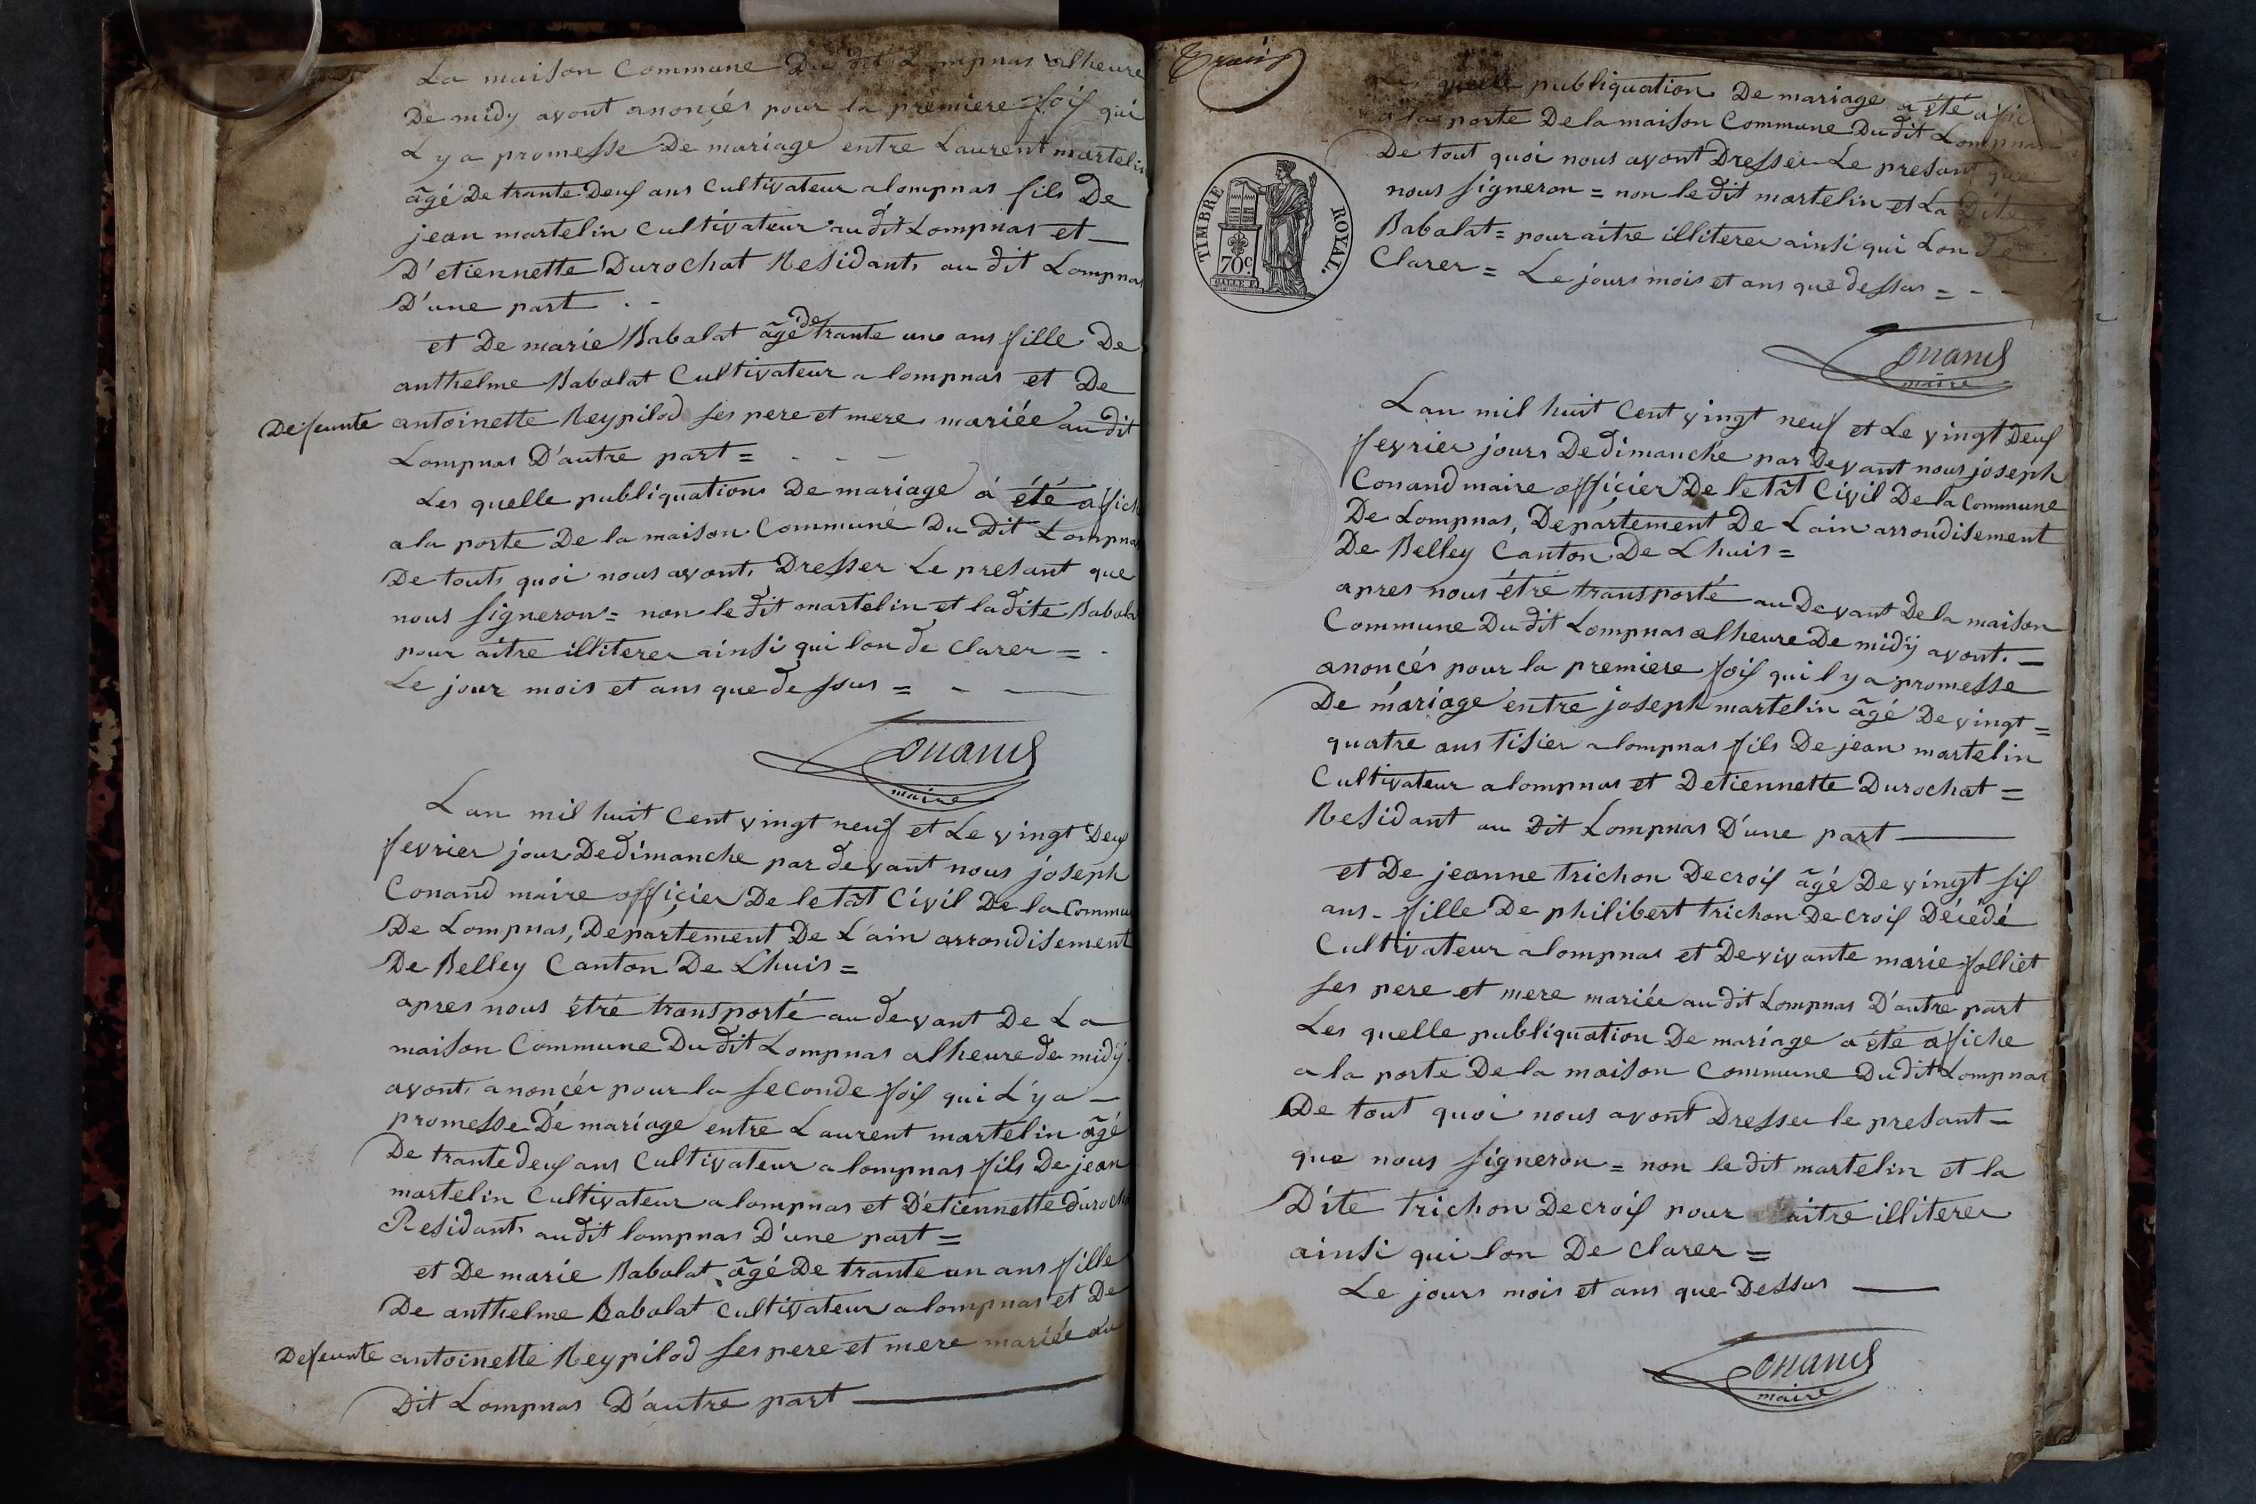 La maison Commune Du dit Lompnas alheure
De midy avont anonçés pour la premiere fois qui
L y a promesse De mariage entre Laurent martelin
âgé De trante Deux ans Cultivateur a lompnas fils De
jean martelin Cultivateur au dit Lompnas et
D'etiennette Durochat Residants au dit Lompnas
D'une part
et De marie Babolat âgé de trante uns ans fille De
anthelme Babolat Cultivateur a lompnas et De
Defeunte antoinette Reypilod ses pere et mere mariée au dit
Lompnas D'autre part =
Les quelle publiquations De mariage á été afich
a la porte De la maison Communé Du Dit Lompnas
De touts quoi nous avonts Dresser Le presant que
nous signeron = non le dit martelin et la dite Babola
pour aitre illiterer ainsi qui lon de clarer =
Le jour mois et ans que de ssus =
Conand
maire
Lan mil huit Cent vingt neuf et Le vingt Deux
fevrier jour De dimanche par devant nous joseph
Conand maire officier De le tât Civil De la Commu
De Lompnas, Departement De L'ain arrondisement
De Belley Canton De Lhuis =
apres nous étre transporté au devant De La
maison Commune Du dit Lompnas alheure de midy
avonts anonçér pour la seconde fois qui L'y a
promesse De mariage entre Laurent martelin âgé
De trante deux ans Cultivateur a lompnas fils De jean
martelin Cultivateur a lompnas et D'etiennette duroch
Residants au dit lompnas D'une part =
et De marie Babolat âgé De trante un ans fille
De anthelme Babolat Cultivateur a lompnas et De
Defeunte antoinette Reypilod ses pere et mere mariée au
Dit Lompnas D'autre part
quelle publiquation De mariage a été afic
a la porte De la maison Commune Du dit Lompnas
De tout quoi nous avont Dresser Le presant que
nous signeron = non le dit martelin et La Dite
Babolat = pour aitre illiterer ainsi qui Lon De
Clarer = Le jours mois et ans que dessus =
TIMBRE ROYAL.
70c
Conand
maire
Lan mil huit Cent vingt neuf et Le vingt Deux
fevrier jours De dimanche par Devant nous joseph
Conand maire officier De le tât Civil De la Commune
De Lompnas, Departement De Lain arrondisement
De Belley Canton De Lhuis =
apres nous étre transporté au Devant De la maison
Commune Du dit Lompnas alheure De midÿ avont
anonçés pour la premiere fois qui l y a promesse
De mariage entre joseph martelin âgé De vingt =
quatre ans tisier a lompnas fils De jean martelin
Cultivateur a lompnas et Detiennette Durochat =
Residant au Dit Lompnas D'une part
et De jeanne trichon Decroix âgé De vingt six
ans - fille De philibert trichon Decroix Décédé
Cultivateur a lompnas et De vivante marie folliet
ses pere et mere mariée au dit Lompnas D'autre part
Les quelle publiquation De mariage a été afiche
a la porte De la maison Commune Du dit Lompnas
De tout quoi nous avont Dresser le presant
que nous signeron = non le dit martelin et la
Dite trichon Decroix pour aitre illiterer
ainsi qui lon De clarer =
Le jours mois et ans que Dessus
Conand
maire